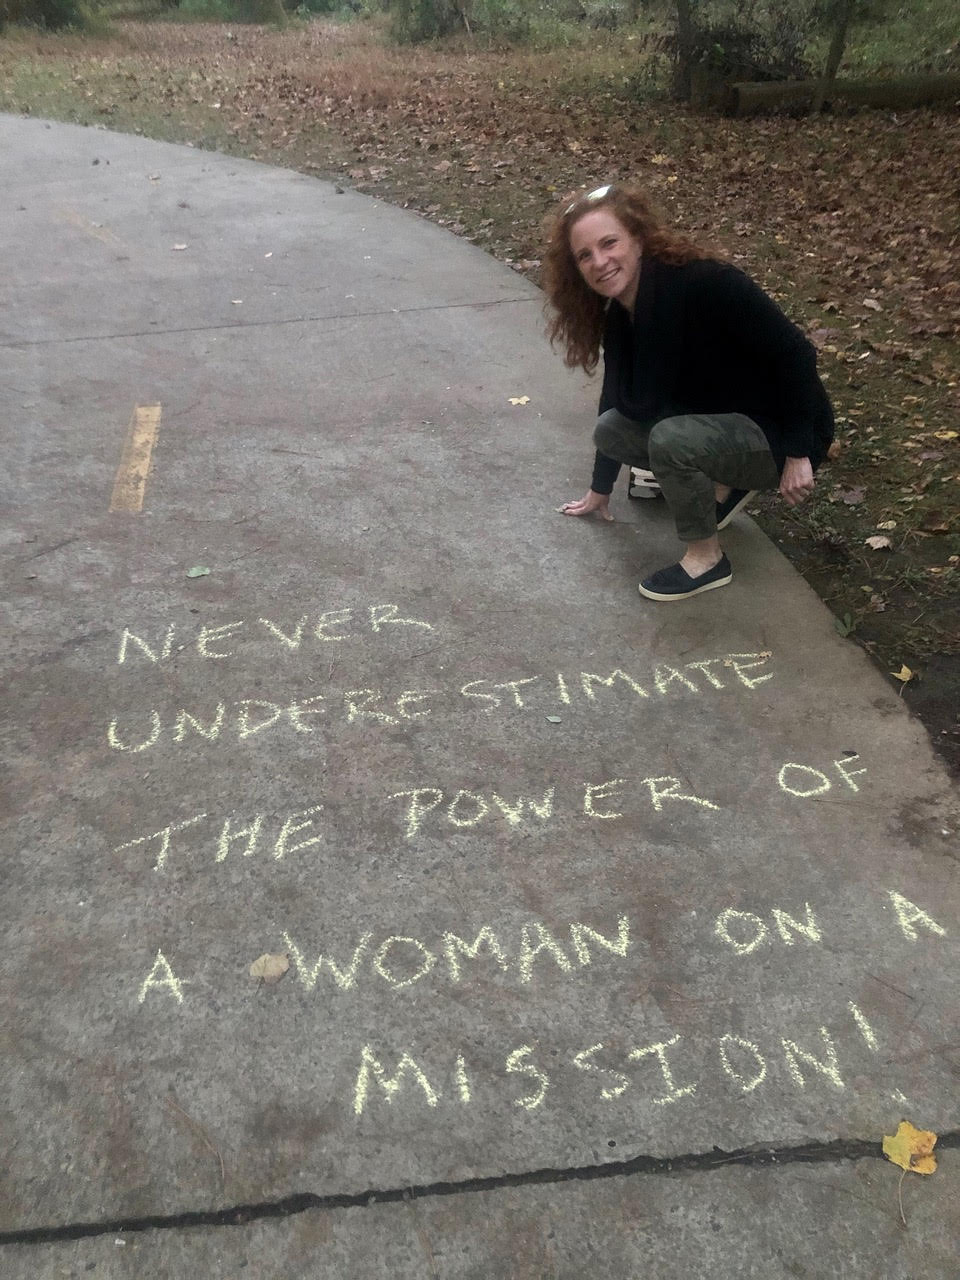 NEVER
UNDERESTIMATE
THE POWER OF
A WOMAN ON A
MISSION!